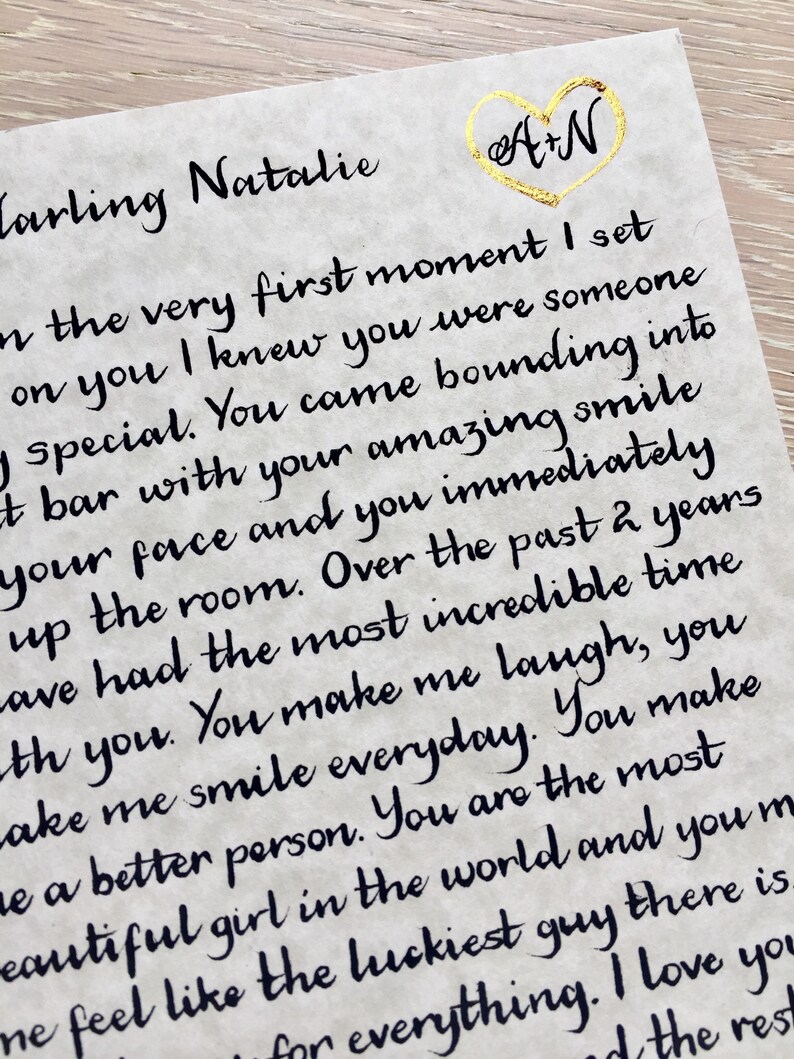 A+N
Darling Natalie
the very first moment I set
on you I knew you were someone
special. You came bounding into
bar with your amazing smile
your face and you immediately
up the room. Over the past 2 years
have had the most incredible time
with you. You make me laugh, you
make me smile everyday. You make
me a better person. You are the most
beautiful girl in the world and you
me feel like the luckiest guy there is.
for everything. I love you
the rest